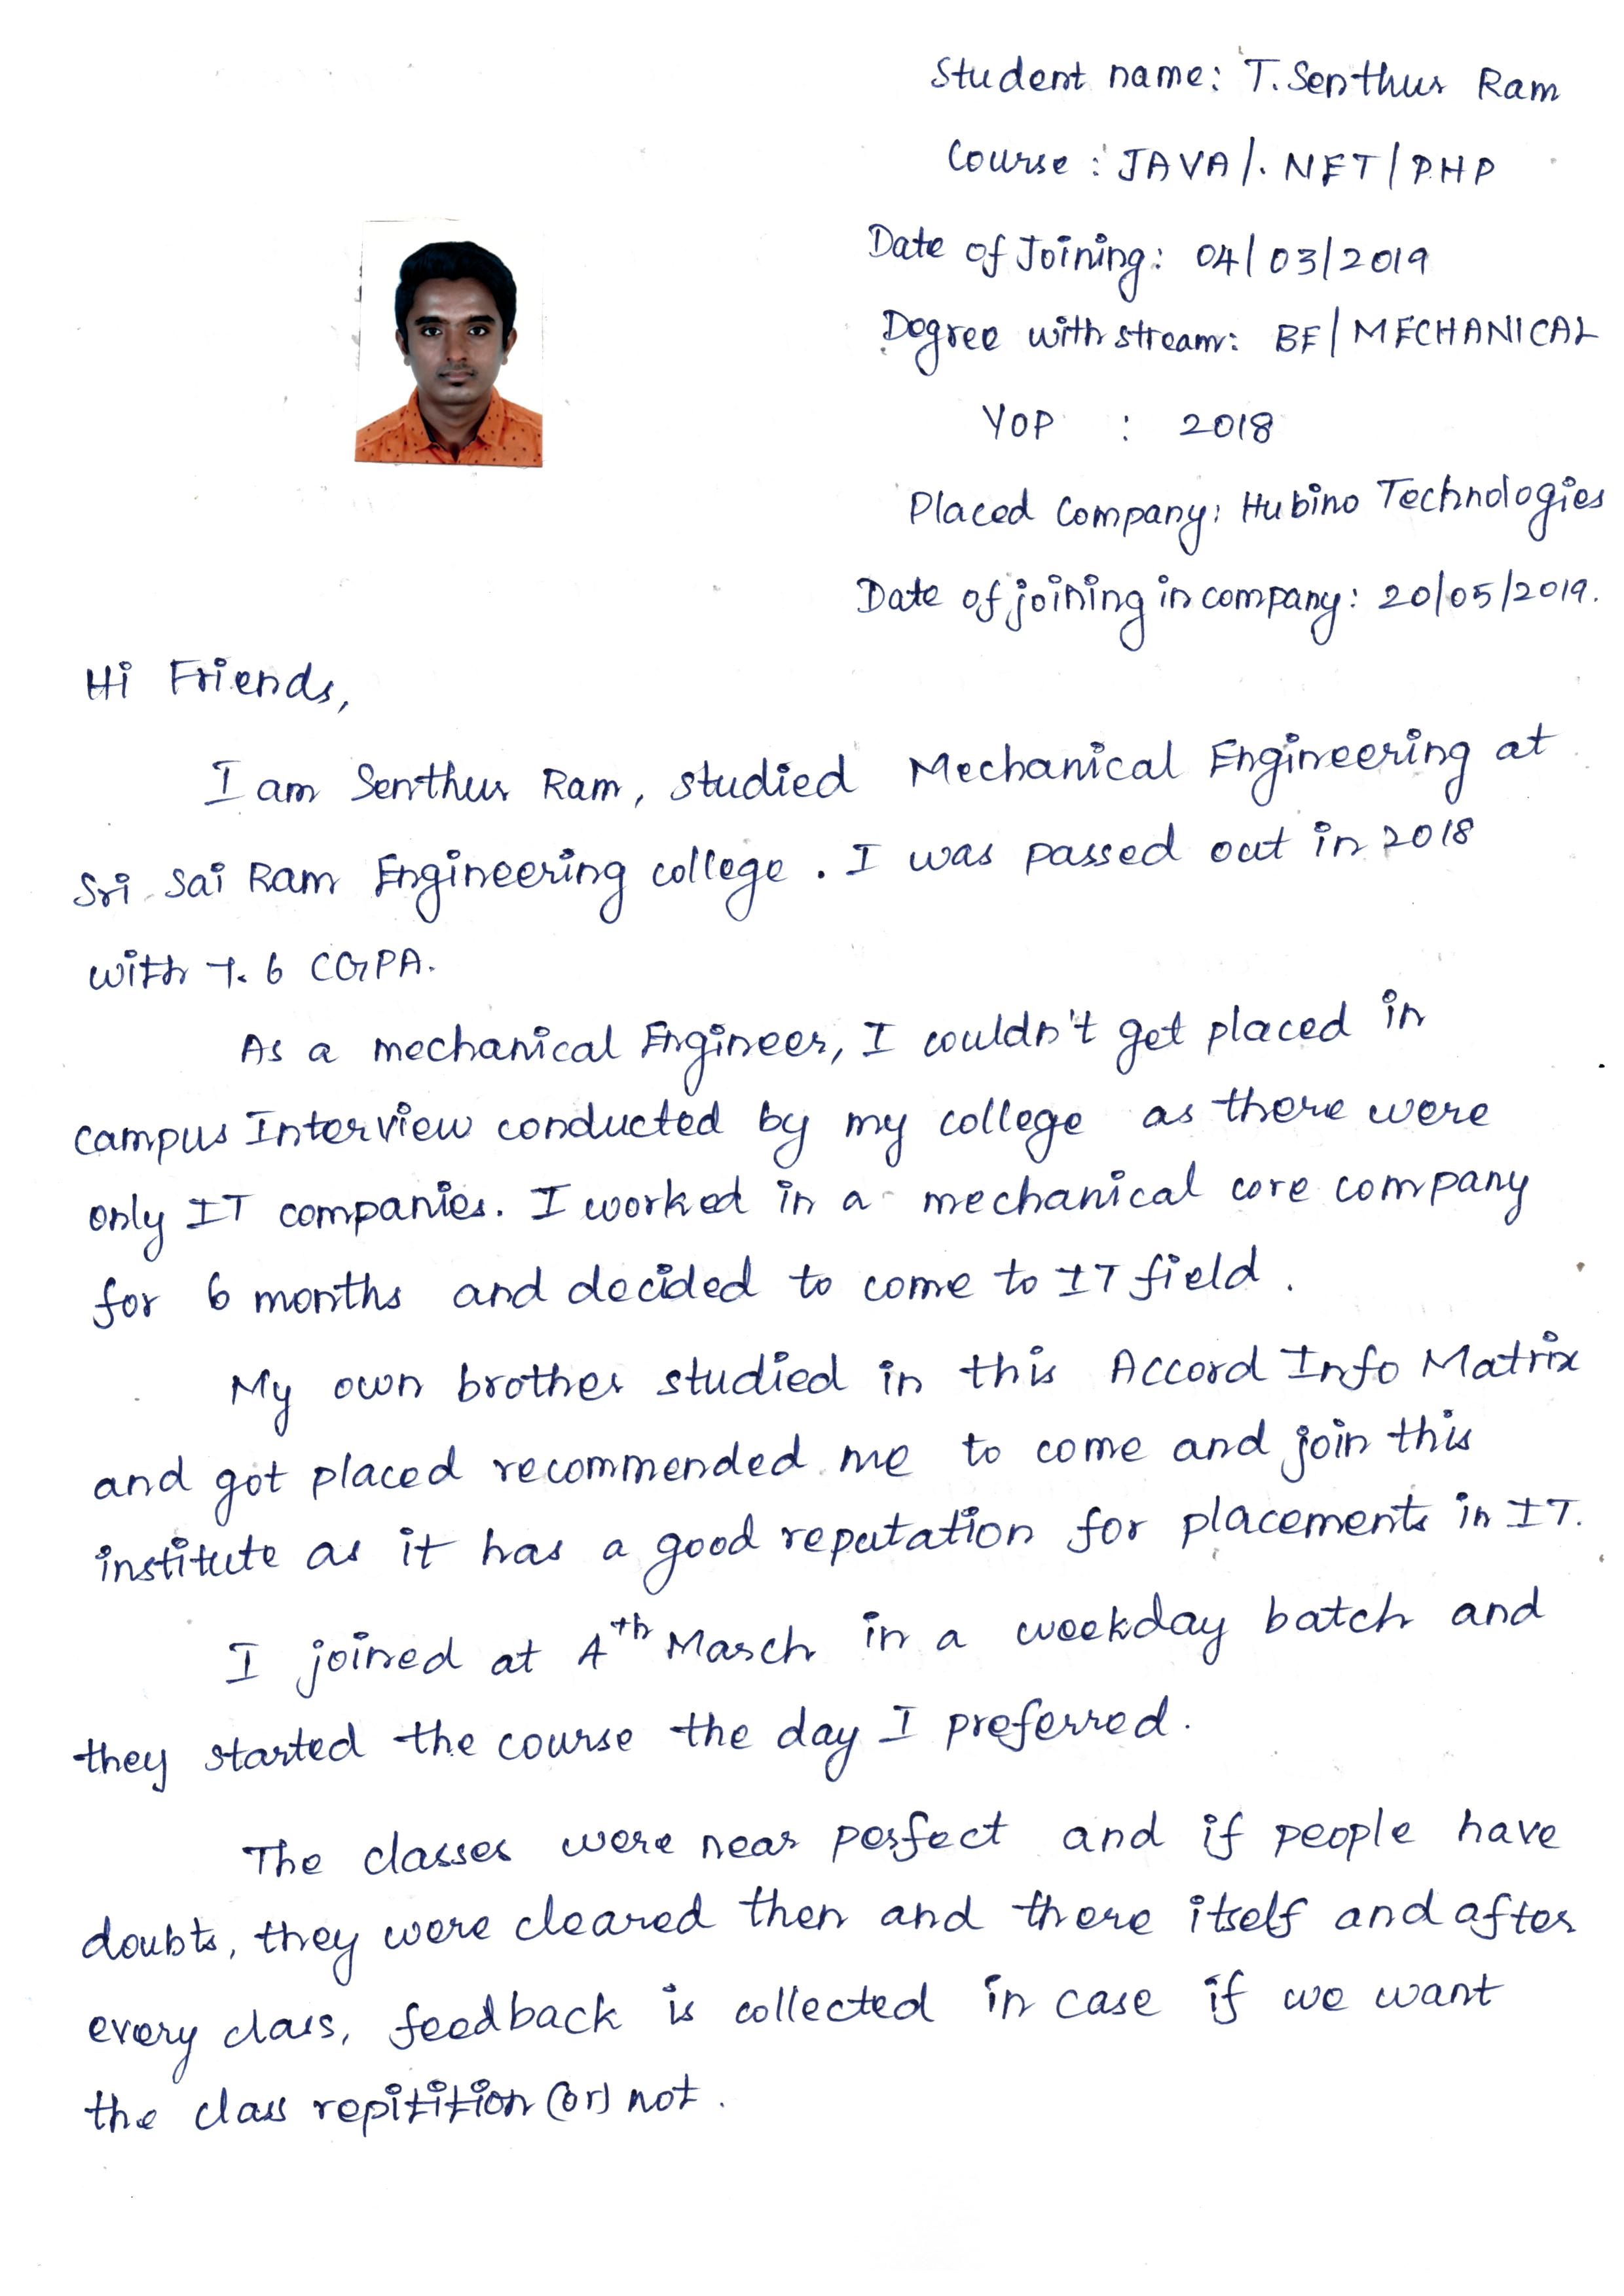 Student name: T. Senthur Ram
Course : JAVA/.NET/PHP
Date of Joining: 04/03/2019
Degree with stream: BE/MECHANICAL
YOP : 2018
Placed Company: Hubino Technologies
Date of joining in company: 20/05/2019.
Hi Friends,
I am Senthur Ram, studied Mechanical Engineering at
Sri Sai Ram Engineering college. I was passed out in 2018
with 7.6 CGPA.
As a mechanical Engineer, I couldn't get placed in
campus Interview conducted by my college as there were
only IT companies. I worked in a mechanical core company
for 6 months and decided to come to IT field.
My own brother studied in this Accord Info Matrix
and got placed recommended me to come and join this
institute as it has a good reputation for placements in IT.
I joined at 4th March in a weekday batch and
they started the course the day I preferred.
The classes were near perfect and if people have
doubts, they were cleared then and there itself and after
every class, feedback is collected in case if we want
the class repitition (or) not.